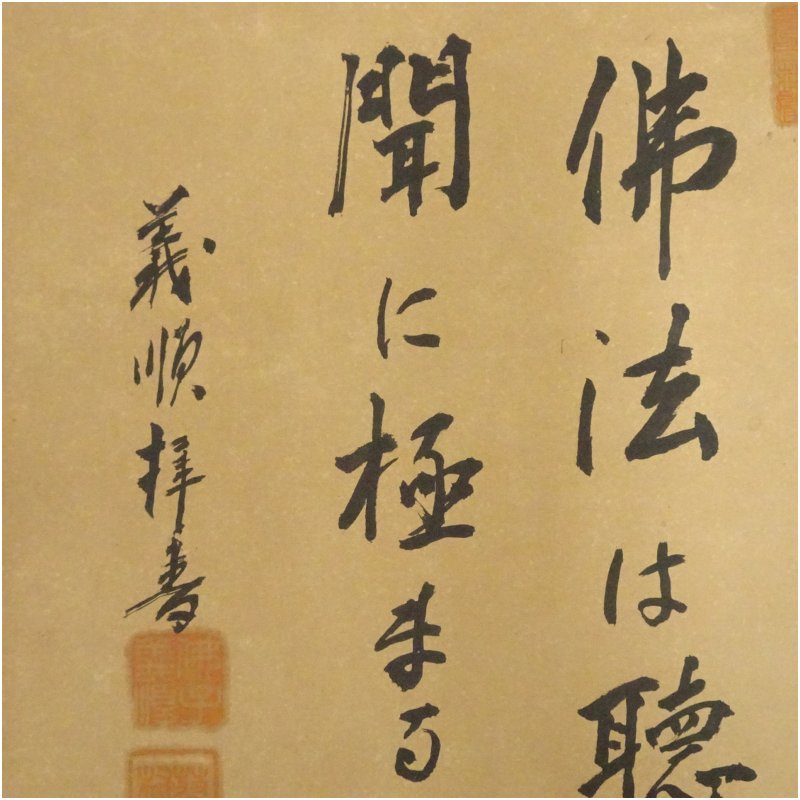 佛法は聽
聞に極まる
義順拜書